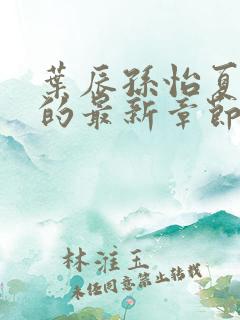 葉辰孫怡夏
的最新章節
林淮玉
未经同意禁止转载